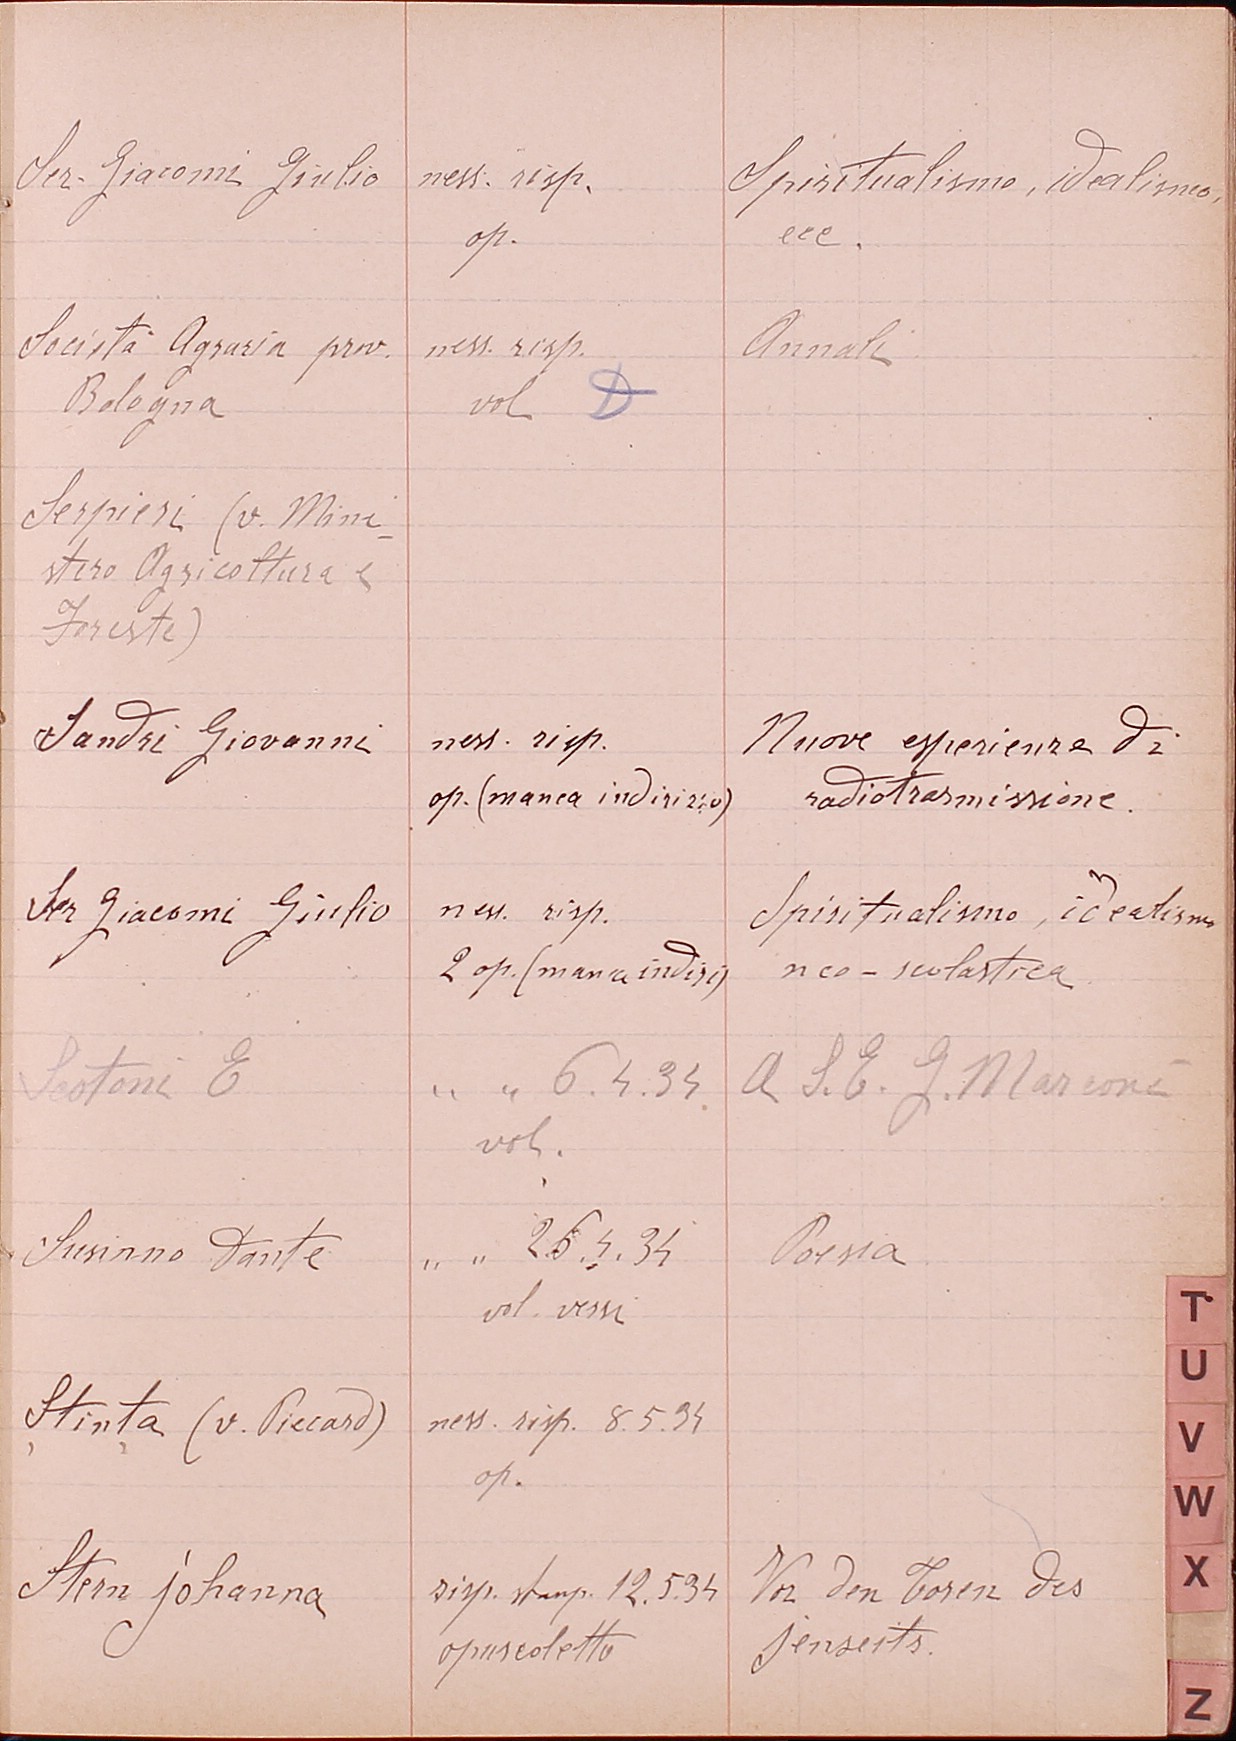 Ser-Giacomi Giulio ness. risp. Spiritualismo, idealismo,
op. ecc.
Società Agraria prov. ness. risp. Annali
Bologna vol D
Serpieri (v. Mini_
stero Agricoltura e
Foreste)
Sandri Giovanni ness. risp. Nuove esperienze di
op. (manca indirizzo) radiotrasmissione.
Ser Giacomi Giulio ness. risp. Spiritualismo, idealismo
2 op. (manca indiri) neo-scolastica
Scotoni E „ „ 6.4.34. A S.E. G. Marconi
vol.
Susinno Dante „ „ 26.4.34 Poesia
vol. versi
Stinta (v. Piccard) ness. risp. 8.5.34
op.
Stern johanna risp. stamp. 12.5.34 Vor den Toren des
opuscoletto jenseits.
T
U
V
W
X
Z